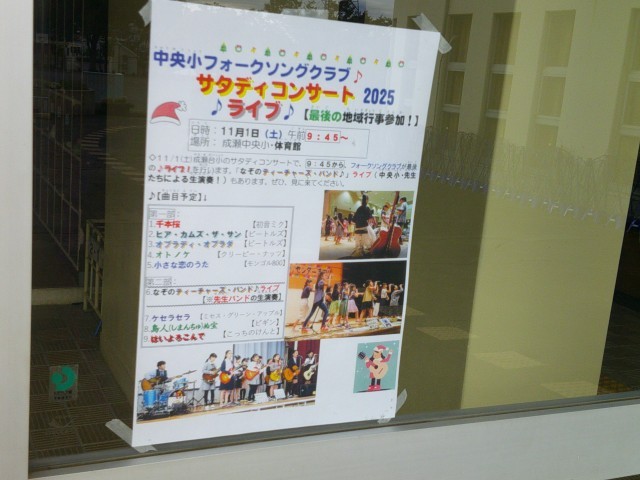 中央小フォークソングクラブ♪
サタディコンサート 2025
♪ライブ♪【最後の地域行事参加!】
日時:11月1日(土)午前9:45〜
場所: 成瀬中央小・体育館
◇11/1(土)成瀬台小のサタディコンサートで、9:45から、フォークソングクラブが最後
の♪ライブ!を行います。「なぞのティーチャーズ・バンド♪」ライブ(中央小・先生
たちによる生演奏!)もあります。ぜひ、見に来てください。
♪[曲目予定]↓
第一部:
1.千本桜 【初音ミク】
2.ヒア・カムズ・ザ・サン【ビートルズ】
3.オブラディ・オブラダ 【ビートルズ】
4.オトノケ 【クリーピー・ナッツ】
5.小さな恋のうた 【モンゴル800】
第二部:
6.なぞのティーチャーズ・バンド♪ライブ
【※先生バンドの生演奏】
7.ケセラセラ 【ミセス・グリーン・アップル】
8.島人(しまんちゅ)ぬ宝 【ビギン】
9.はいよろこんで 【こっちのけんと】